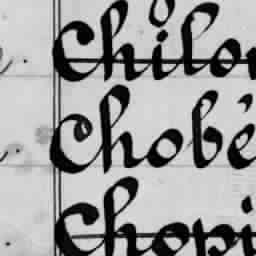 Chilo
Chobé
Chopi